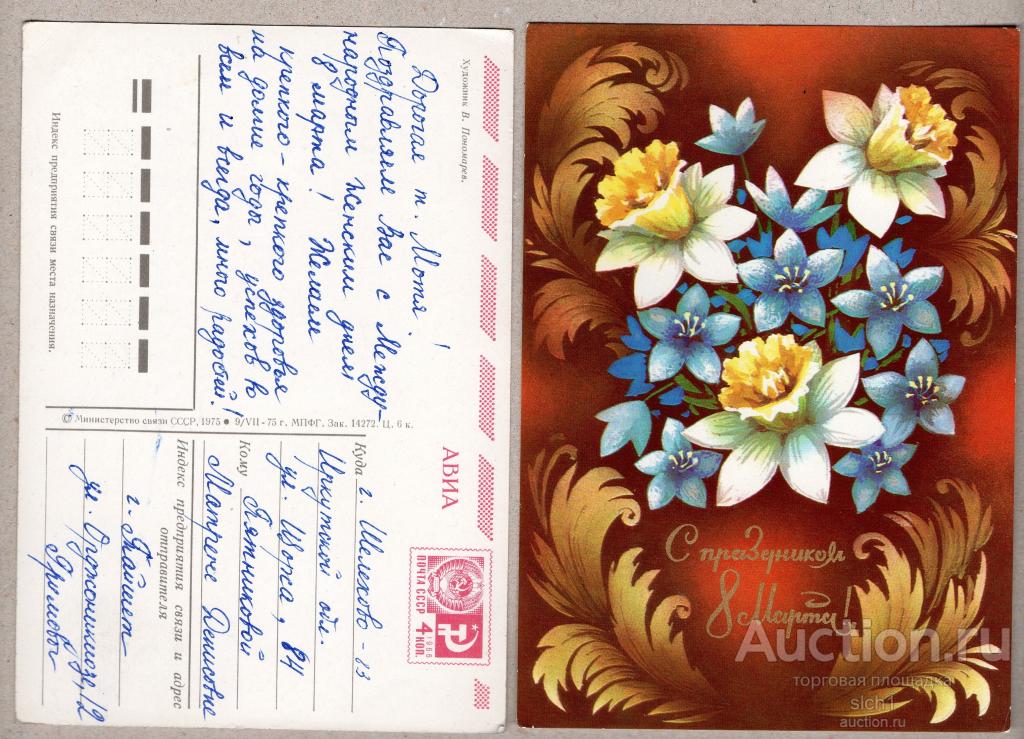 Художник В. Пономарев.
Дорогая т. Мотя!
Поздравляем Вас с Между-
народным Женским днем
8 марта! Желаем
крепкого-крепкого здоровья
на долгие годы, успехов во
всем и всегда, много радостей!
Индекс предприятия связи места назначения.
© Министерство связи СССР, 1975 ● 9/VII-75 г. МПФГ. Зак. 14272. Ц. 6 к.
АВИА
ПОЧТА СССР
1966
4 КОП.
Куда г. Шелехов-83
Иркутской обл.
ул. Щорса, 84
Кому Пятниковой
Матрене Денисовне
Индекс предприятия связи и адрес
отправителя
г. Тайшет
ул. Орджоникидзе, 12
С праздником
8 Марта!
Auction.ru
торговая площадка
slch1
auction.ru